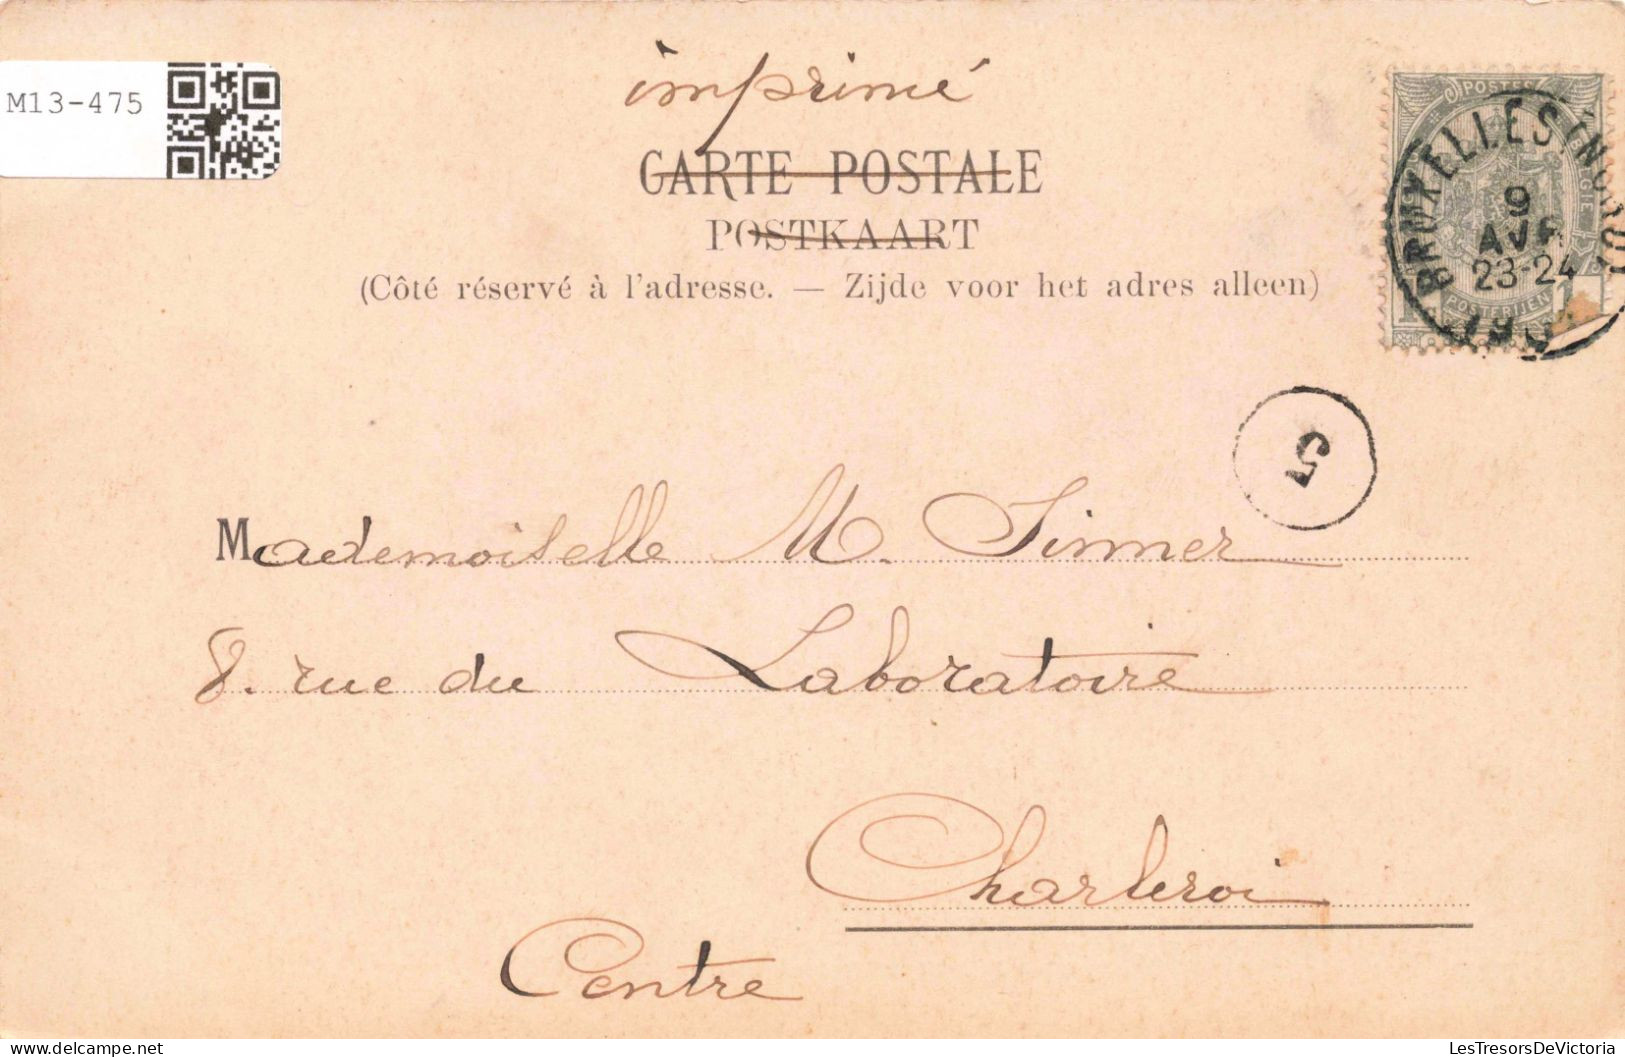 M13-475
imprimé
CARTE POSTALE
POSTKAART
(Côté réservé à l'adresse. — Zijde voor het adres alleen)
POSTES
BRUXELLES (NORD)
9
AVR
23-24
POSTERIJEN
1
5
Mademoiselle M. Sinner
8. rue du Laboratoire
Charleroi
Centre
LesTresorsDeVictoria
delcampe.net